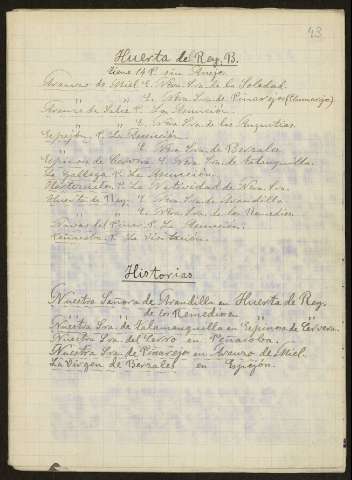 43
Huerta de Rey. B.
tiene 14 P. sin Anejo
Arauzo de Miel E. Ntra. Sra. de la Soledad.
" " " E. Ntra Sra. de Pinarejos (Pinarejo)
Arauzo de Salce P. La Asunción.
" " " E. Ntra Sra. de las Angustias
Espejón. P. La Asunción.
" E. Ntra Sra. de Berzales
Espinosa de Cervera. E. Ntra Sra. de
La Gallega P. La Asunción.
Hontoria P. La Natividad de Ntra. Sra.
Huerta de Rey. E. Ntra Sra. de Arandilla
" " " E. Ntra Sra. de los Remedios
Navas del Pinar. P. La Asunción.
Peñacoba. P. La Visitación.
Historias
Nuestra Señora de Arandilla en Huerta de Rey.
" " de los Remedios " " "
Nuestra Sra. de Talamanquilla en Espinosa de Cervera.
Nuestra Sra. del Cerro en Peñacoba.
Nuestra Sra. de Pinarejos en Arauzo de Miel.
La Virgen de Berzales en Espejón.